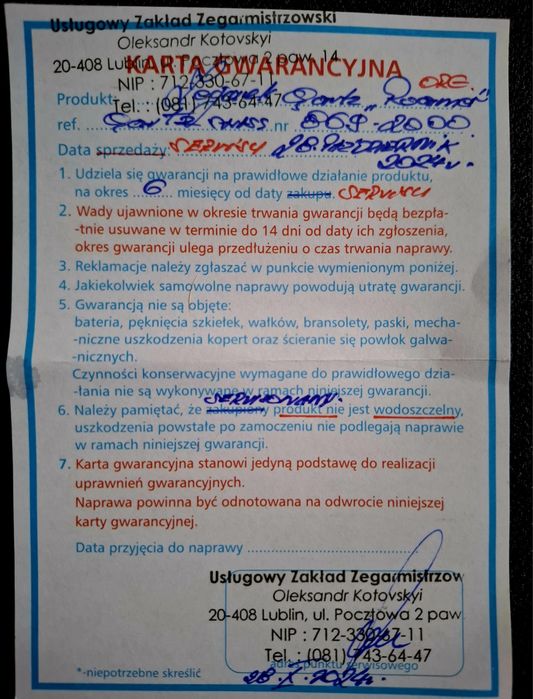 Usługowy Zakład Zegarmistrzowski
Oleksandr Kotovskyi
20-408 Lublin, ul. Pocztowa 2 paw. 14
KARTA GWARANCYJNA
NIP : 712-330-67-11
Produkt
Tel. : (081) 743-64-47
ref. nr 869-2000
Data sprzedaży SERWISU 28 PAŹDZIERNIK
2024r.
1. Udziela się gwarancji na prawidłowe działanie produktu,
na okres 6 miesięcy od daty zakupu. SERWISU
2. Wady ujawnione w okresie trwania gwarancji będą bezpła-
-tnie usuwane w terminie do 14 dni od daty ich zgłoszenia,
okres gwarancji ulega przedłużeniu o czas trwania naprawy.
3. Reklamacje należy zgłaszać w punkcie wymienionym poniżej.
4. Jakiekolwiek samowolne naprawy powodują utratę gwarancji.
5. Gwarancją nie są objęte:
bateria, pęknięcia szkiełek, wałków, bransolety, paski, mecha-
-niczne uszkodzenia kopert oraz ścieranie się powłok galwa-
-nicznych.
Czynności konserwacyjne wymagane do prawidłowego dzia-
-łania nie są wykonywane w ramach niniejszej gwarancji.
SERWISOWANY.
6. Należy pamiętać, że zakupiony produkt nie jest wodoszczelny,
uszkodzenia powstałe po zamoczeniu nie podlegają naprawie
w ramach niniejszej gwarancji.
7. Karta gwarancyjna stanowi jedyną podstawę do realizacji
uprawnień gwarancyjnych.
Naprawa powinna być odnotowana na odwrocie niniejszej
karty gwarancyjnej.
Data przyjęcia do naprawy
Usługowy Zakład Zegarmistrzow
Oleksandr Kotovskyi
20-408 Lublin, ul. Pocztowa 2 paw.
NIP : 712-330-67-11
Tel. : (081) 743-64-47
adres punktu serwisowego
*-niepotrzebne skreślić 28.X.2024r.